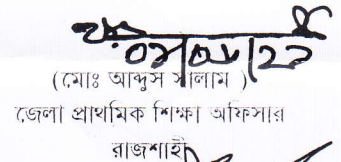 (মোঃ আব্দুস সালাম )
জেলা প্রাথমিক শিক্ষা অফিসার
রাজশাহী